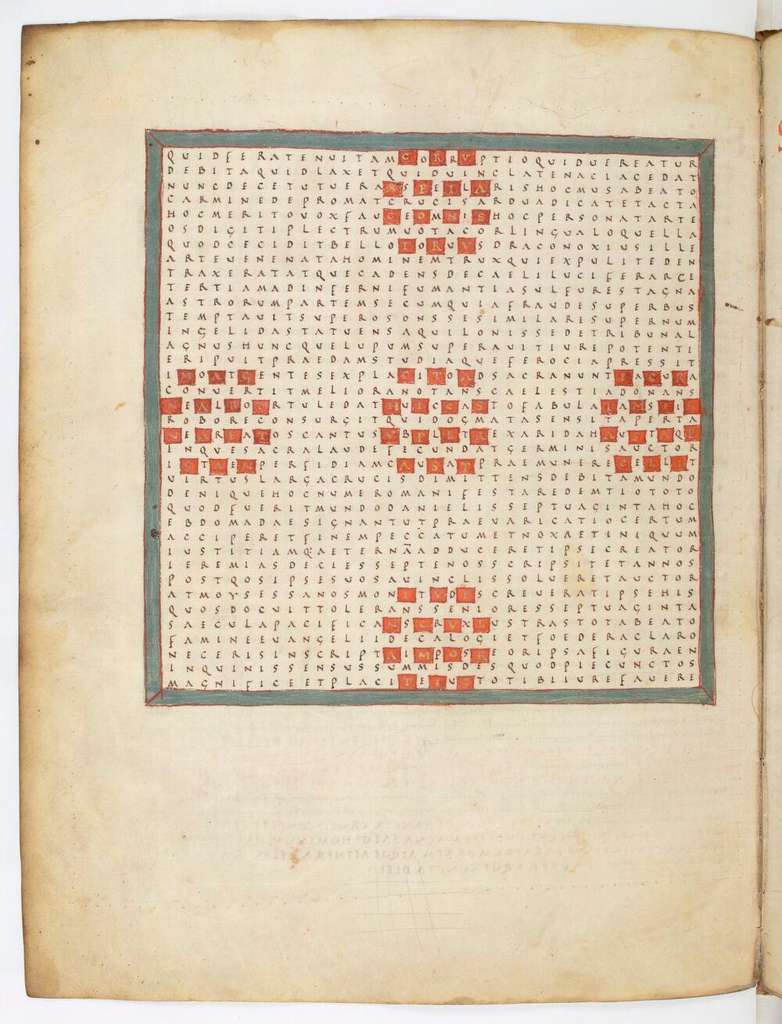 QUIDFERATENUITAMCORRVPTIOQUIDUEREATUR
DEBITAQUIDLAXETQUIDUINCLATENACIACEDAT
NUNCDECETUTUERARSPEILARISHOCMUSABEATO
CARMINEDEPROMATCRUCISARDUADICATETACTA
HOCMERITOVOXFAUCEOMNISHOCPERSONATARTE
OSDIGITIPLECTRUMUOTACORLINGUALOQUELLA
QUODCECIDITBELLOTORVUSDRACONOXIUSILLE
ARTEUENENATAHOMINEMTRUXQUIEXPULITEDEN
TRAXERATATQUECADENSDECAELILUCIFERARCE
TERTIAMADINFERNIFUMANTIASULFURESTAGNA
ASTRORUMPARTEMSECUMQUIAFRAUDESUPERBUS
TEMPTAUITSUPEROSONSSESIMILARESUPERNUM
INGELIDASTATUENSAQUILONISSEDETRIBUNAL
AGNUSHUNCQUELUPUMSUPERAUITIUREPOTENTI
ERIPUITPRAEDAMSTUDIAQUEFEROCIAPRESSIT
IMOATGENTESEXPLACITOADSACRANUNTIACURA
CONUERTITMELIORANOTANSCAELESTIADONANS
NEALMORTULEDATHUICCASTOFABULALAMSIL
ROBORECONSURGITQUIDOGMATASENSITAPERTA
NEAREATOSCANTUSUBIPLETREXARIDAHAUSTAQ
INQUESACRALAUDEFECUNDATGERMINISAUCTOR
ISTAENPERFIDIAMCAUSATPRAEMUNERECELLIT
VIRTUSLARGACRUCISDIMITTENSDEBITAMUNDO
DENIQUEHOCNUMEROMANIFESTAREDEMTIOTOTO
QUODFUERITMUNDODANIELISSEPTUAGINTAHOC
EBDOMADAESIGNANTUTPRAEVARICATIOCERTUM
ACCIPERETFINEMPECCATUMETNOXAETINIQUUM
IUSTITIAMQ;AETERNĀADDUCERETIPSECREATOR
IEREMIASDECIESSEPTENOSSCRIPSITETANNOS
POSTQOSIPSESUOSAUINCLISSOLUERETAUCTOR
ATMOYSESSANOSMONITUDESCREUERATIPSEHIS
QUOSDOCUITTOLERANSSENIORESSEPTUAGINTA
SAECULAPACIFICANSCRUXLUSTRASTOTABEATO
FAMINEEUANGELIIDECALOGIETFOEDERACLARO
NECERISINSCRIPTAIMPOSREORIPSAFIGURAEN
INQUINISSENSUSSUMMISDESQUODPIECUNCTOS
MAGNIFICEETPLACITETUSTOTIBILIUREFAUERE